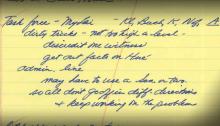 Task force - Mystai - Kl, Buch, K,
dirty tricks - not too high a level -
discredit the witness
get out facts on Hiss
admin. line
may have to use a sen. or two
so all don't go off in diff. directions
& keep working on the problem